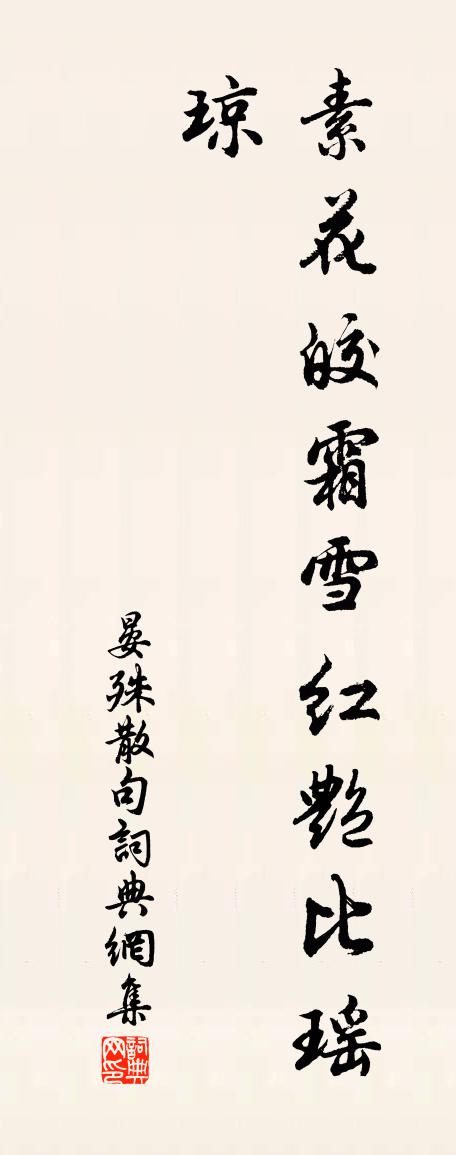 素花皎霜雪红艷比瑶
琼
晏殊散句詞典網集
詞典网印